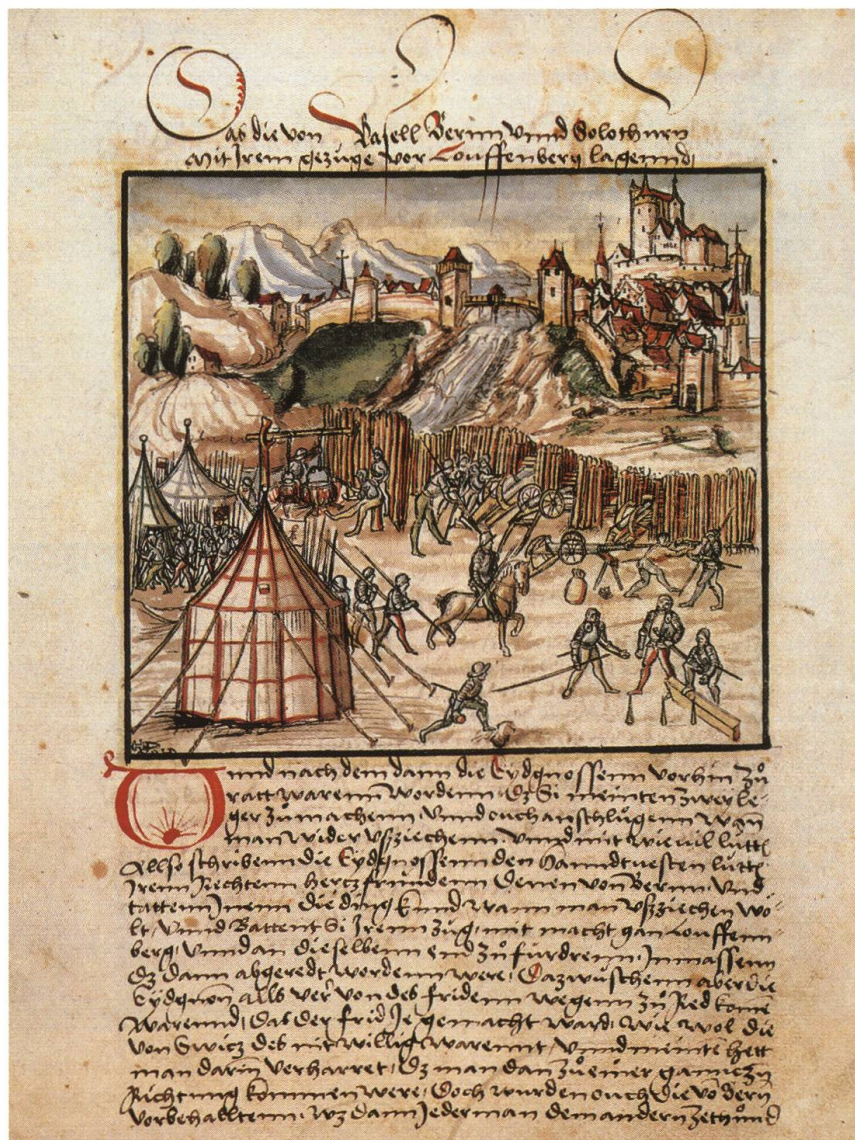 Das die von Basell Bernn unnd Solothurn
mit Irem gezüge vor Louffenberg lagennd
Unnd nach dem dann die Eydgnossenn vorhin zů
ratt warenn wordenn Dz Si meinten zwey le-
ger zůmachenn unnd ouch anschlůgenn wan
man wider ußziechenn unnd mit wie vil lütt
Allso schribenn die Eydgnossenn den lütt
Irenn hertz fründenn Denen von Bernn und
tattenn Inenn die ding kund wann man ußziechen wö-
lt, unnd Battent Si Irenn zůg mit macht gan Louffenn-
berg, unnd an dieselbenn end zů fürdrenn, Inmassenn
Dz dann abgeredt wordenn were, Dazwüschenn aber die
Eydgnon alls ver von des fridenn wegenn zů Red kome
warennd, Das der frid Je gemacht ward, wie wol die
von Swicz des nit willig warennt unnd meinte hett
man darin verharret, Dz man dan zů einer ganczn
Richtung kommen were, Doch wurden ouch die vordern
vorbehalltenn, wz dann Jederman dem andern